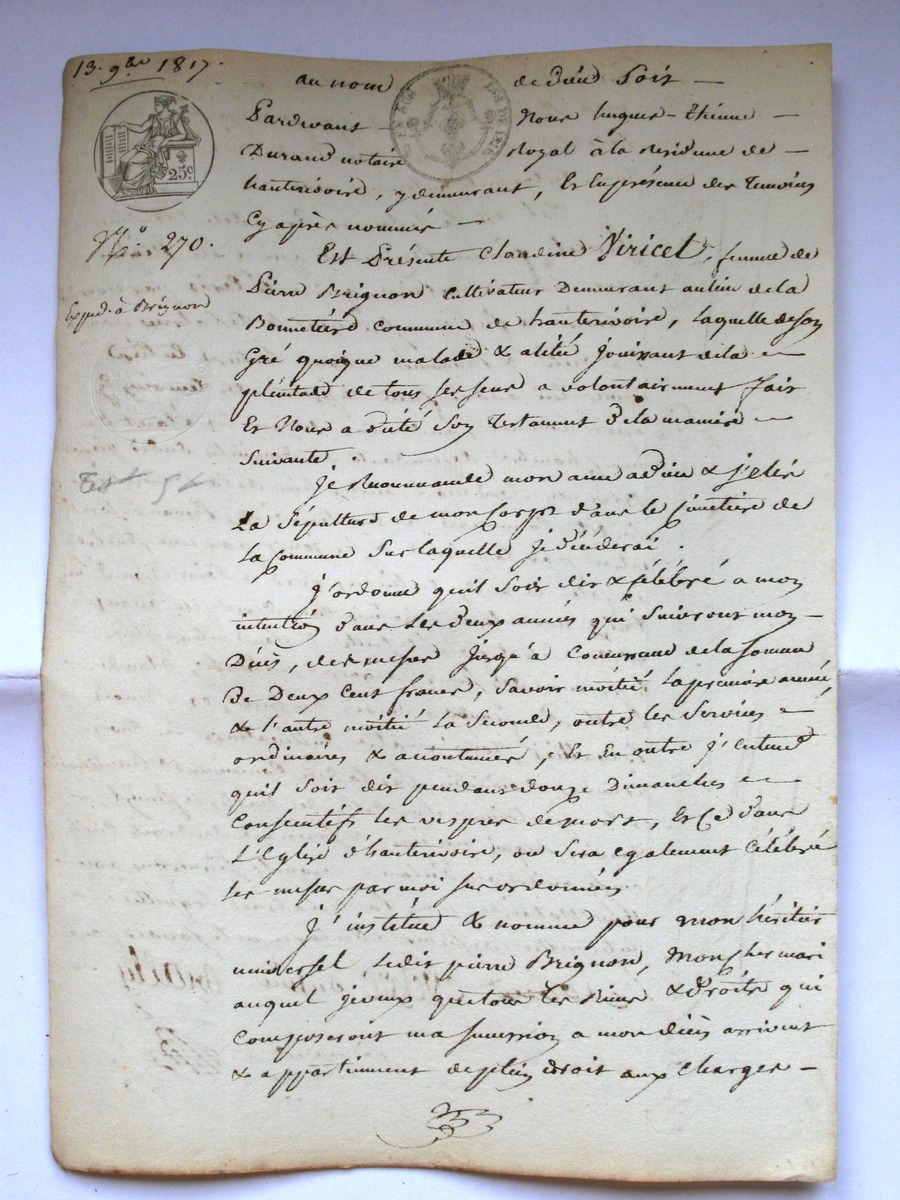 13. 9bre 1817.
au nom de dieu soit
Pardevant Nous hugues-Etienne
Durand notaire Royal à la residence de
hauterivoire, y demeurant, Et En présence des Temoins
Cy après nommés
25c
N.o 270.
Est Présente Claudine Viricel, femme de
Pierre Brignon Cultivateur Demeurant au lieu de la
Exped. à Brignon
Bonnetière commune de hauterivoire, laquelle de son
Gré quoique malade & alitée Jouissant de la
plénitude de tous ses sens a volontairement fait
Et Nous a dicté son Testament de la manière
suivante.
Je Recommande mon ame a dieu & j'elis
La Sépulture de mon corps dans le cimetière de
la Commune sur laquelle Je décéderai.
J'ordonne qu'il soit dit & célébré a mon
intention dans les deux années qui suivront mon
Décès, des messes jusqu'à concurrance de la somme
De Deux Cent francs, savoir moitié la première année,
& l'autre moitié la seconde, outre les services
ordinaires & accoutumés, Et En outre j'entend
qu'il soit dit pendant douze Dimanches
Consecutifs les vespres de mort, Et Ce dans
L'Eglise d'hauterivoire, ou sera également célébré
les messes par moi sus ordonnées
J'institue & nomme pour mon héritier
universel ledit pierre Brignon, Mon cher mari
auquel je veux que tous les Biens & droits qui
composeront ma succession a mon décès arrivent
& appartiennent de plein droit aux charges